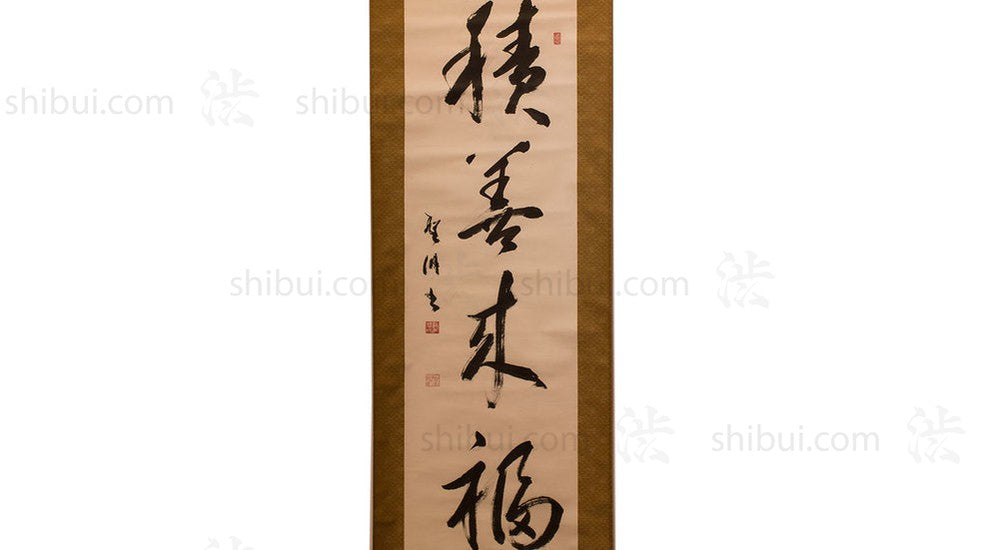 積善来福
書
shibui.com 渋 shibui.com
shibui.com shibui.com 渋
shibui.com 渋 shibui.com 渋